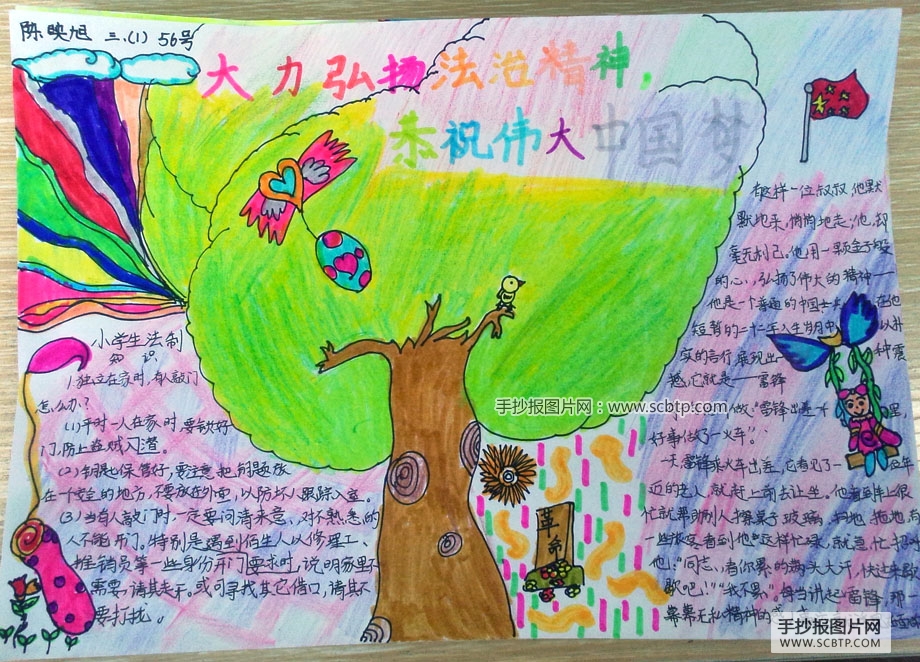 陈映旭 三.(1) 56号
大力弘扬法治精神,
恭祝伟大中国梦
小学生法制
知识
1.独立在家时,有人敲门
怎么办?
(1)平时一人在家时,要锁好
门,防止盗贼入
(2)钥匙也保管好,要注意把钥匙放
在一个安全的地方,不要放在外面,以防坏人跟踪入室。
(3)当有人敲门时,一定要问清来意,对不熟悉的
人不能开门。特别是遇到陌生人以修理工、
推销员等一些身份开门要求时,说明家里不
需要,请其走开。或可寻找其它借口,请其不
要打扰。
有这样一位叔叔,他默
默地来,悄悄地走;他,却
毫无利己。他用一颗金子般
的心,弘扬了伟大的精神——
他是一个普通的中国士兵,在他
短暂的二十二年人生岁月中,以朴
实的言行,展现出一种震
撼,它就是——雷锋
做:"雷锋出差一千里,
好事做了一火车"。
一天,雷锋乘火车出差,它看见了一位年
近的老人,就赶上前去让坐。他看到车上很
忙就帮助别人擦桌子、玻璃、扫地、拖地,有
一些旅客看到他这样忙碌,就急忙招呼
他:"同志,看你累的满头大汗,快过来歇
歇吧!""我不累。"每当讲起雷锋那一
幕幕无私精神的
革命
手抄报图片网:www.scbtp.com
手抄报图片网
WWW.SCBTP.COM